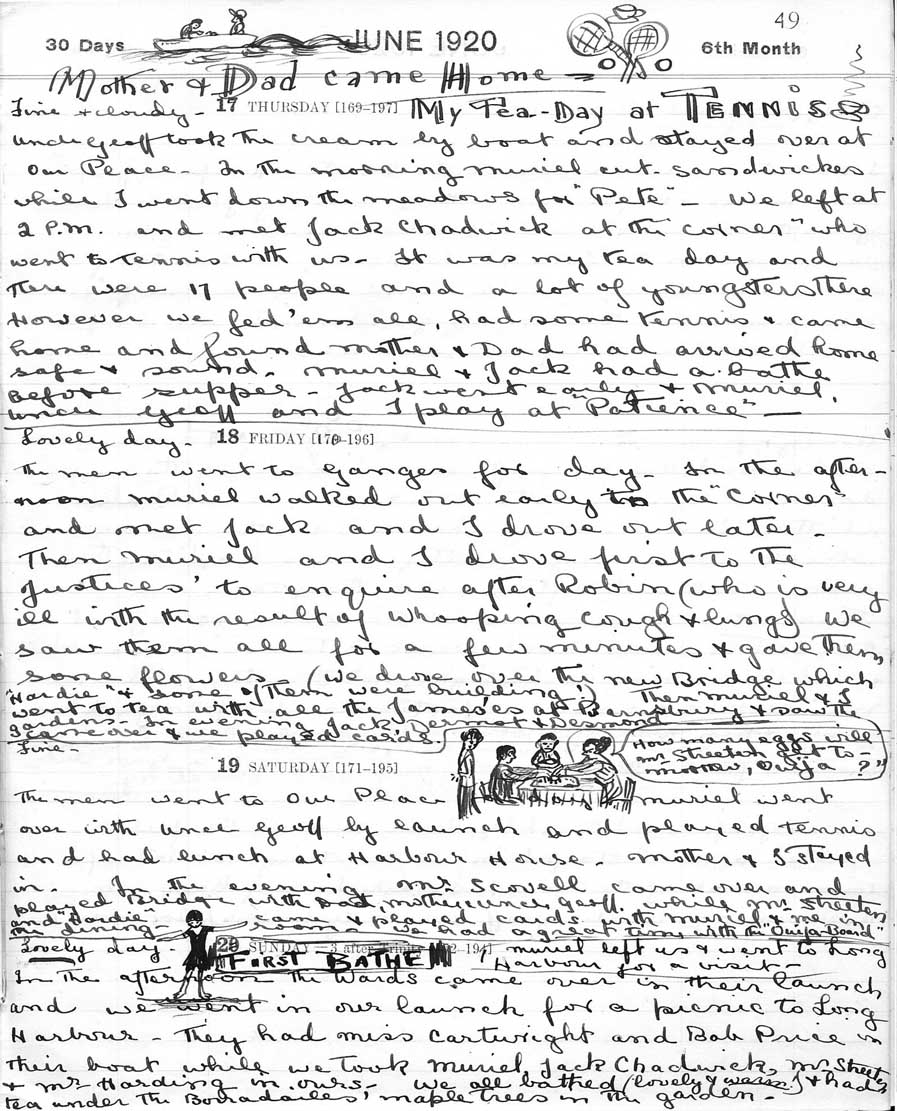 49
30 Days JUNE 1920 6th Month
Mother & Dad came Home -
Fine & cloudy - 17 THURSDAY [169-197] My Tea-Day at TENNIS
Uncle Geoff took the cream by boat and stayed over at
Our Place - In the morning Muriel cut sandwickes
while I went down the meadows for "Pete" - We left at
2 P.M. and met Jack Chadwick at the "corner" who
went to tennis with us - It was my tea day and
there were 17 people and a lot of youngsters there
However we fed 'em all, had some tennis & came
home and found mother & Dad had arrived home
safe & sound. Muriel & Jack had a bathe
before supper - Jack went early & Muriel,
Uncle Geoff and I play at "Patience" -
Lovely day - 18 FRIDAY [170-196]
The men went to Ganges for day - In the after-
noon Muriel walked out early to the "Corner"
and met Jack and I drove out later -
Then Muriel and I drove first to the
Justices' to enquire after Robin (who is very
ill with the result of whooping cough & lungs) We
saw them all for a few minutes & gave them
some flowers - (we drove over the new Bridge which
"Hardie" & some of them were building!) Then Muriel & I
went to tea with all the James'es at Barnsbury & saw the
gardens - In evening Jack, Dermot & Desmond
came over & we played cards
Fine -
How many eggs will
Mr Streeten get to-
morrow, Ouija ?"
19 SATURDAY [171-195]
The men went to Our Place Muriel went
over with Uncle Geoff by launch and played tennis
and had lunch at Harbour House - Mother & I stayed
in. In the evening Mr Scovell came over and
played Bridge with Dad, mother, uncle Geoff. while Mr Streeten
and "Hardie" came & played cards with Muriel & me in
the dining- room - we had a great time with the "Ouija-Board"
Lovely day - 20 SUNDAY-3 after Trinity [172-194] Muriel left us & went to Long
FIRST BATHE Harbour for a visit -
In the afternoon the Wards came over in their launch
and we went in our launch for a picnic to Long
Harbour - They had Miss Cartwright and Bob Price in
their boat while we took Muriel, Jack Chadwick, Mr Streeten
& Mr Harding in ours - We all bathed (lovely & warm) & had
tea under the Borradailes' maple trees in the garden -